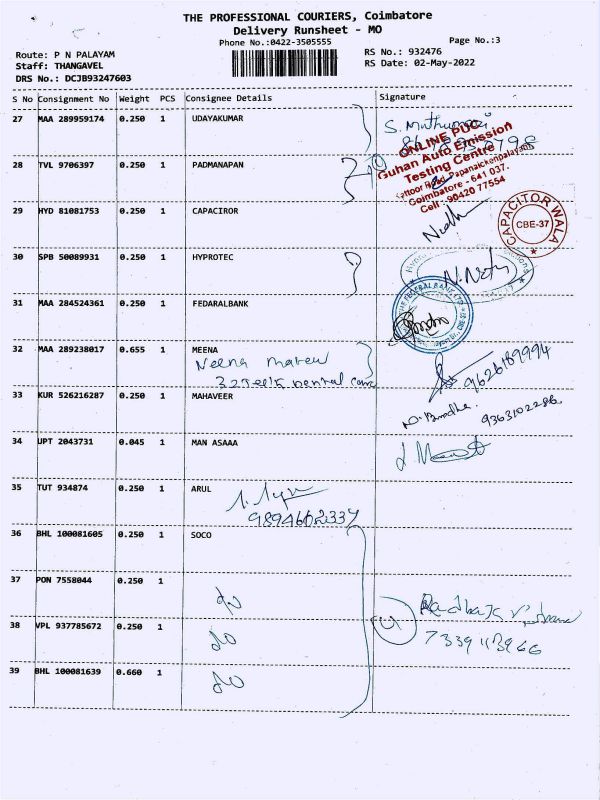 THE PROFESSIONAL COURIERS, Coimbatore
Delivery Runsheet - MO
Phone No.:0422-3505555
Page No.:3
Route: P N PALAYAM
RS No.: 932476
Staff: THANGAVEL
RS Date: 02-May-2022
DRS No.: DCJB93247603
S No Consignment No Weight PCS Consignee Details Signature
27 MAA 289959174 0.250 1 UDAYAKUMAR
28 TVL 9706397 0.250 1 PADMANAPAN
ONLINE PUC
Guhan Auto Emission
Testing Centre
Road, Papanaickenpalayam
Coimbatore - 641 037.
Cell : 90420 77554
29 HYD 81081753 0.250 1 CAPACIROR
CAPACITOR WALA
CBE-37
30 SPB 50089931 0.250 1 HYPROTEC
31 MAA 284524361 0.250 1 FEDARALBANK
FEDERAL BANK LTD
32 MAA 289238017 0.655 1 MEENA
Neena Mathew
32 Teeth Dental Care
9626189994
33 KUR 526216287 0.250 1 MAHAVEER
9363102286
34 UPT 2043731 0.045 1 MAN ASAAA
35 TUT 934874 0.250 1 ARUL
9894602337
36 BHL 100081605 0.250 1 SOCO
37 PON 7558044 0.250 1
do
38 VPL 937785672 0.250 1
do
4
7339113966
39 BHL 100081639 0.660 1
do